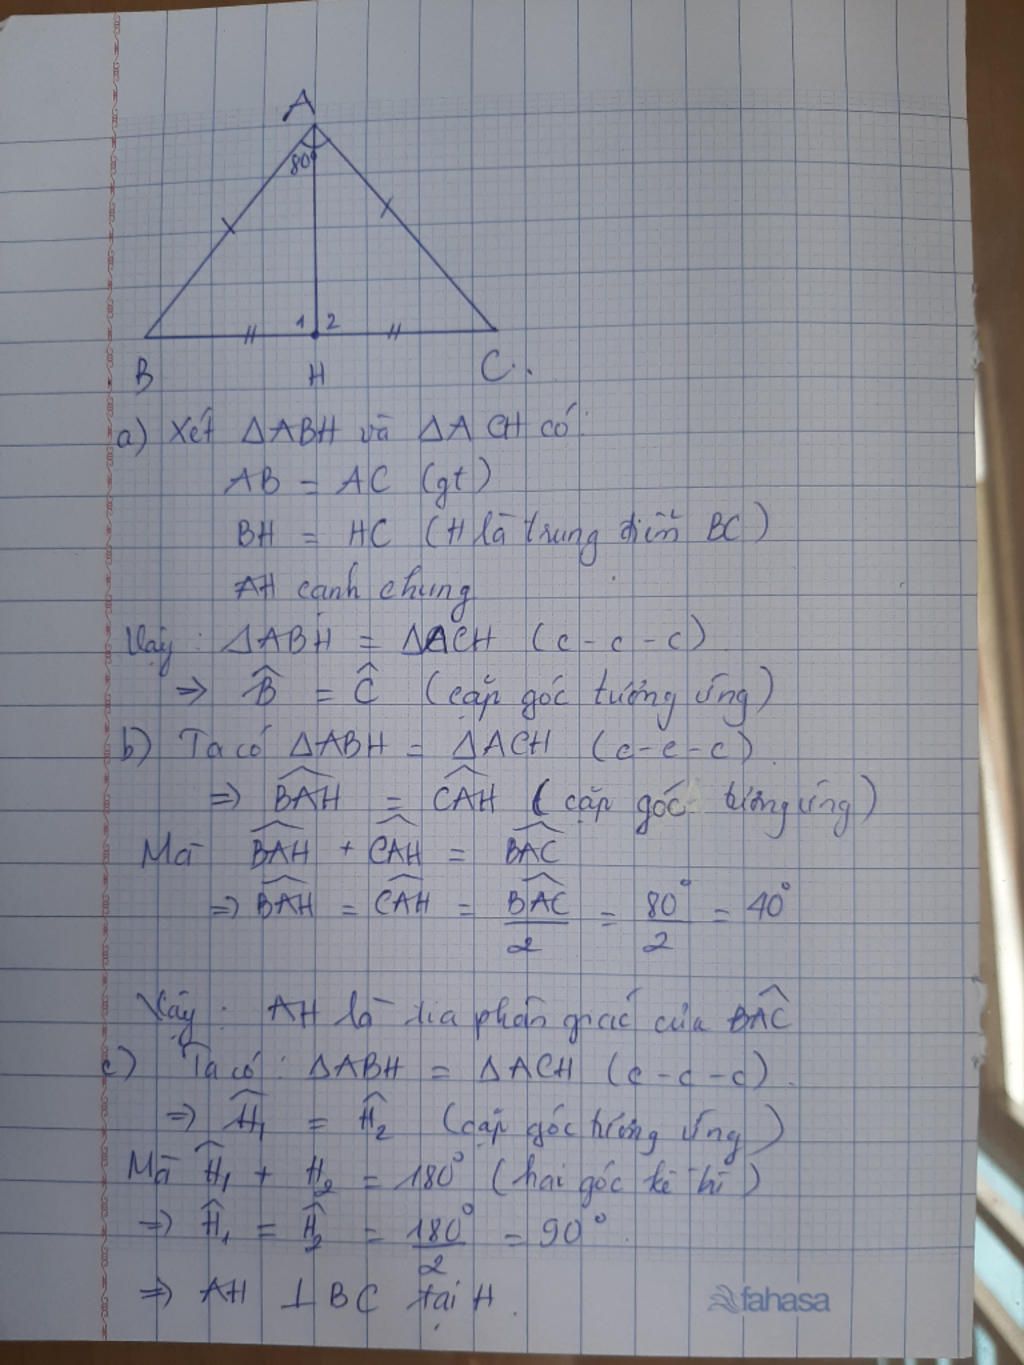 A
80°
1 2
B H C.
a) Xét ΔABH và ΔACH có:
AB = AC (gt)
BH = HC (H là trung điểm BC)
AH cạnh chung
Vậy: ΔABH = ΔACH (c-c-c)
⇒ B̂ = Ĉ (cặp góc tương ứng)
b) Ta có ΔABH = ΔACH (c-c-c)
⇒ \widehat{BAH} = \widehat{CAH} (cặp góc tương ứng)
Mà \widehat{BAH} + \widehat{CAH} = \widehat{BAC}
⇒ \widehat{BAH} = \widehat{CAH} = \widehat{BAC}/2 = 80°/2 = 40°
Vậy: AH là tia phân giác của \widehat{BAC}
c) Ta có: ΔABH = ΔACH (c-c-c).
⇒ Ĥ₁ = Ĥ₂ (cặp góc tương ứng)
Mà Ĥ₁ + H₂ = 180° (hai góc kề bù)
⇒ Ĥ₁ = Ĥ₂ = 180°/2 = 90°.
⇒ AH ⊥ BC tại H.
fahasa